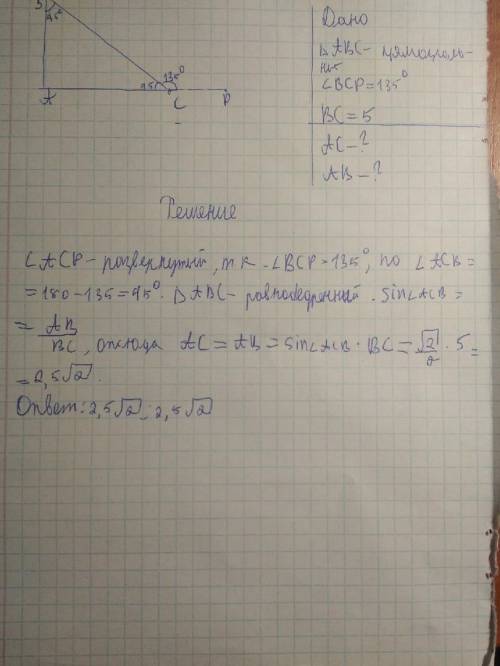 B
45°
135°
45°
A
C
P
Дано
△ABC - прямоуголь-
ный
∠BCP = 135°
BC = 5
AC - ?
AB - ?
Решение
∠ACP - развернутый, т к. ∠BCP = 135°, то ∠ACB =
= 180 - 135 = 45°. △ABC - равнобедренный. sin∠ACB =
= AB/BC, отсюда AC = AB = sin∠ACB · BC = √2/2 · 5 =
= 2,5√2.
Ответ: 2,5√2; 2,5√2